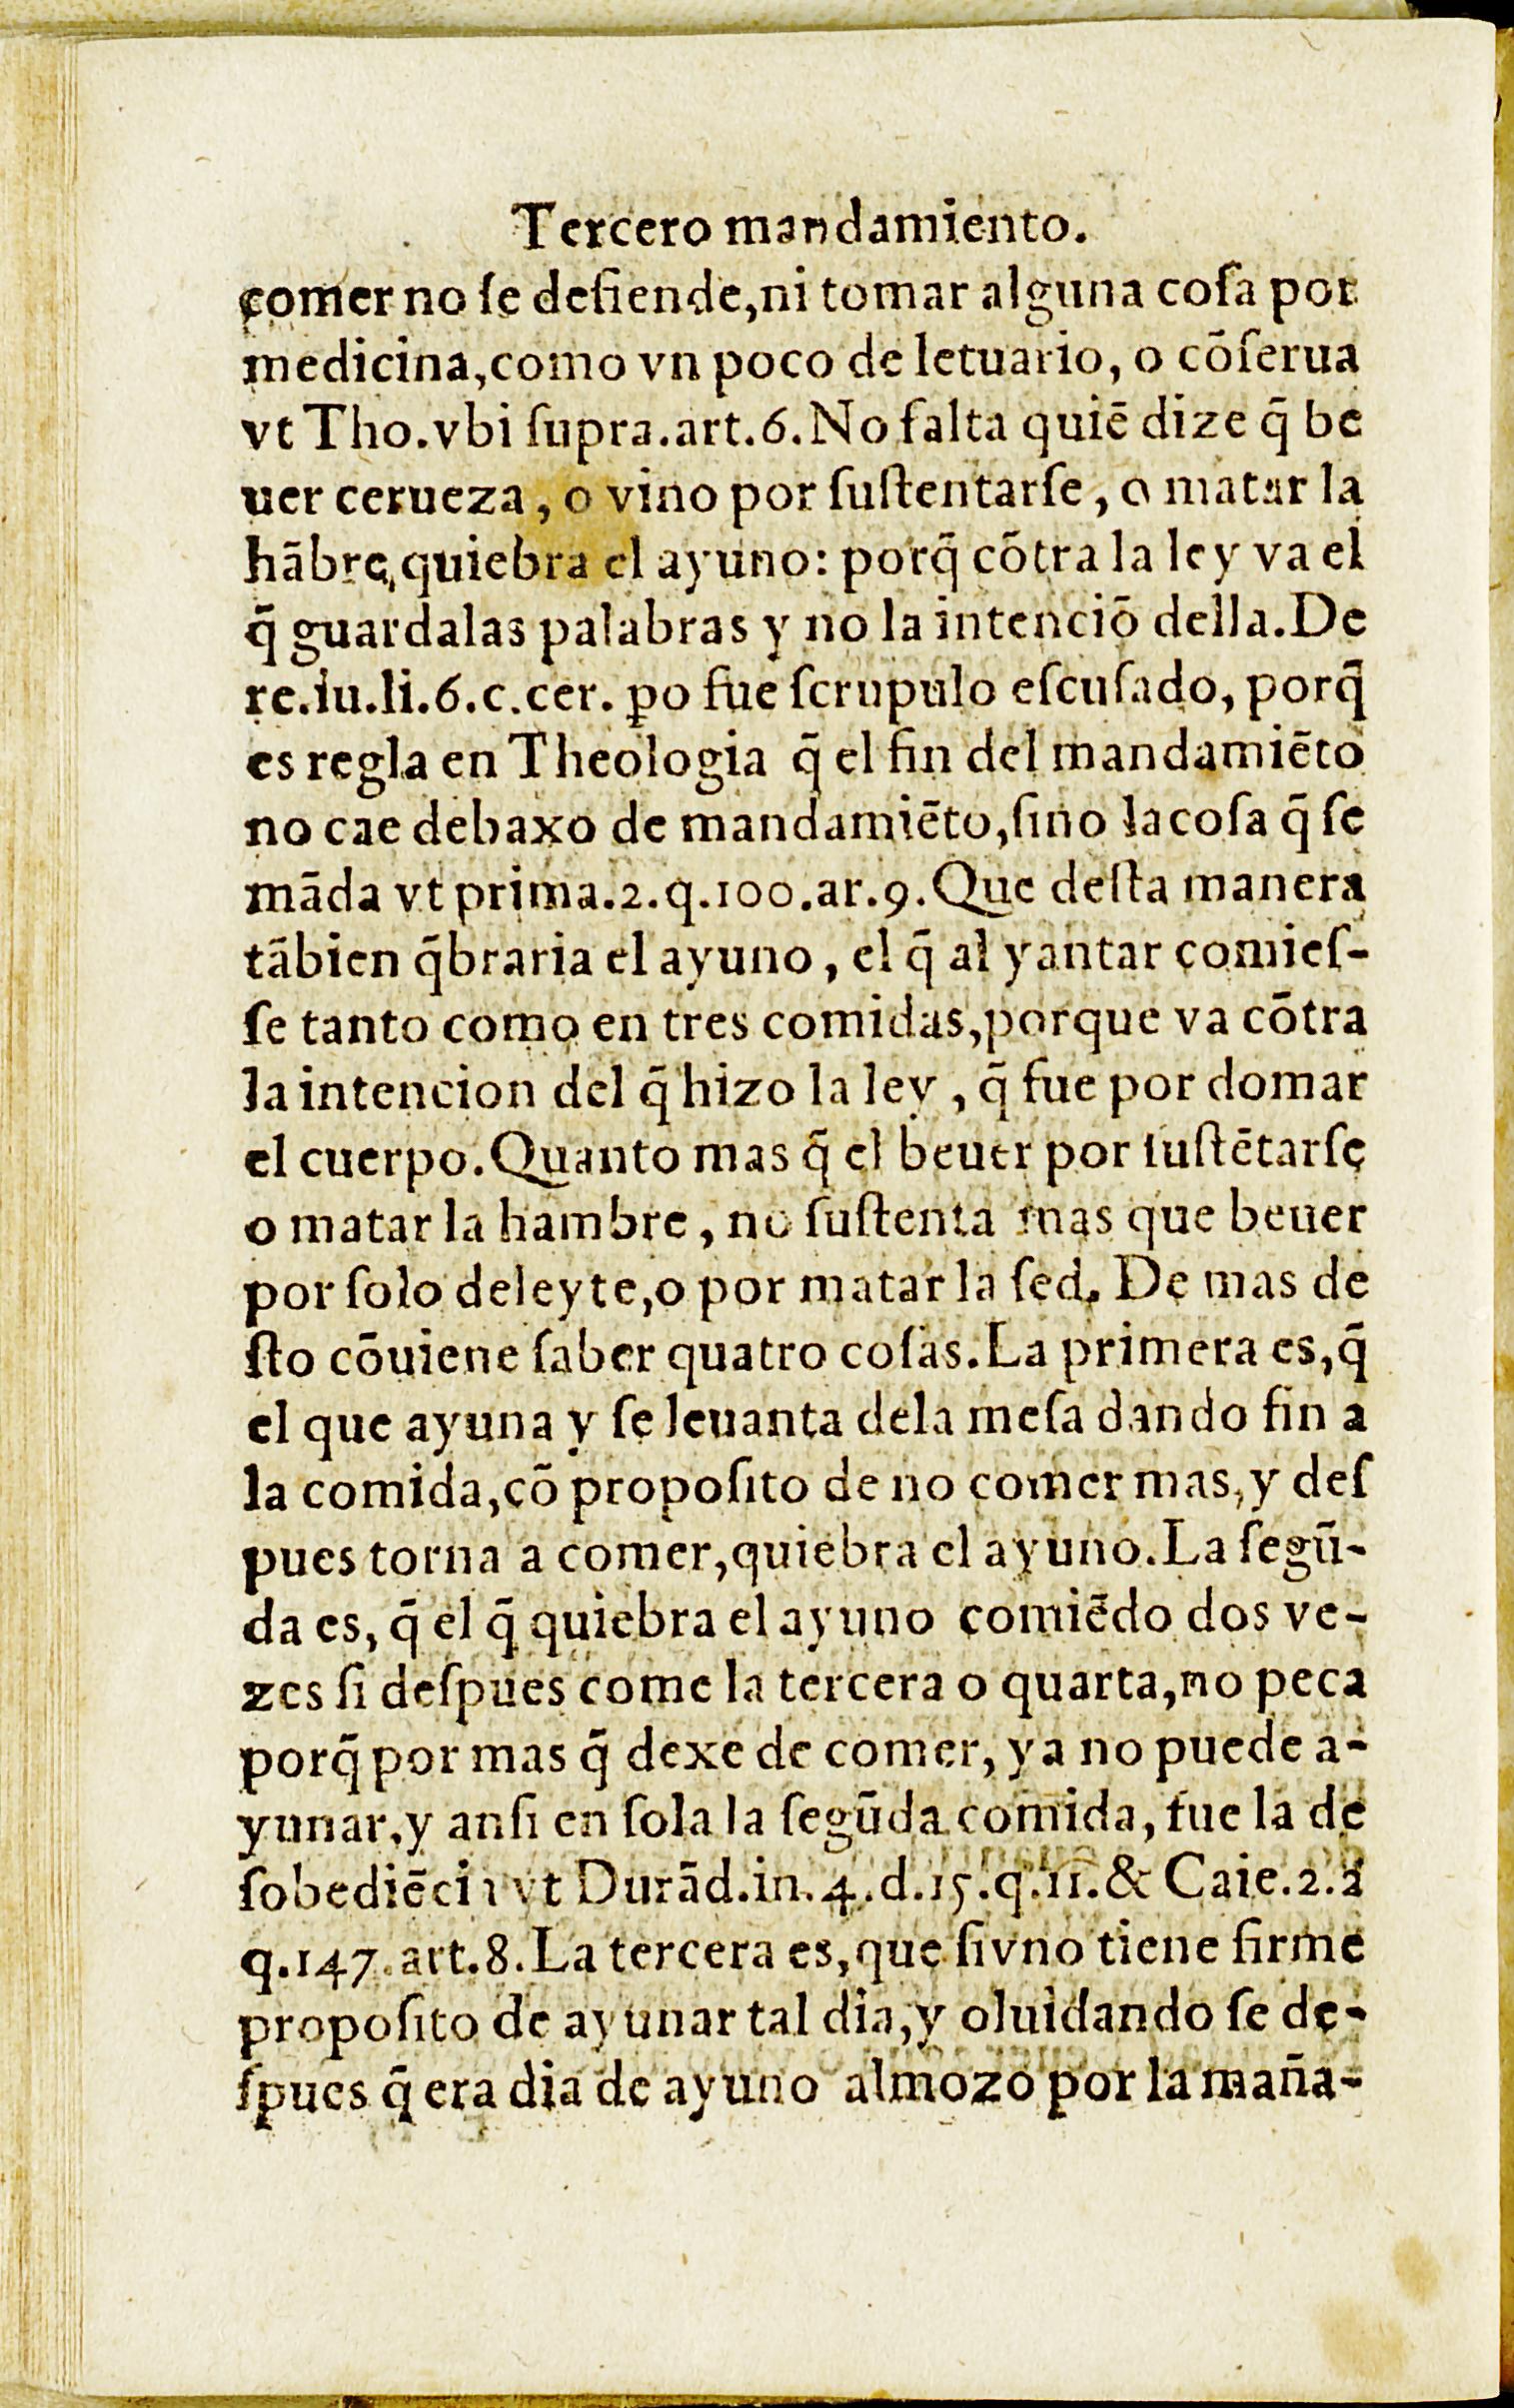 Tercero mandamiento.
comer no ſe defiende,ni tomar alguna coſa por
medicina,como vn poco de letuario, o cõſerua
vt Tho.vbi ſupra.art.6.No falta quiẽ dize q̃ be
uer cerueza, o vino por ſuſtentarſe, o matar la
hãbre,quiebra el ayuno: porq̃ cõtra la ley va el
q̃ guardalas palabras y no la intenciõ della.De
re.iu.li.6.c.cer. ꝑo fue ſcrupulo eſcuſado, porq̃
es regla en Theologia q̃ el fin del mandamiẽto
no cae debaxo de mandamiẽto,ſino la coſa q̃ ſe
mãda vt prima.2.q.100.ar.9.Que deſta manera
tãbien q̃braria el ayuno, el q̃ al yantar comieſ-
ſe tanto como en tres comidas,porque va cõtra
la intencion del q̃ hizo la ley, q̃ fue por domar
el cuerpo.Quanto mas q̃ el beuer por ſuſtẽtarſe
o matar la hambre, no ſuſtenta mas que beuer
por ſolo deleyte,o por matar la ſed. De mas de
ſto cõuiene ſaber quatro coſas.La primera es,q̃
el que ayuna y ſe leuanta dela meſa dando fin a
la comida,cõ propoſito de no comer mas,y deſ
pues torna a comer,quiebra el ayuno.La ſegũ-
da es, q̃ el q̃ quiebra el ayuno comiẽdo dos ve-
zes ſi deſpues come la tercera o quarta,no peca
porq̃ por mas q̃ dexe de comer, ya no puede a-
yunar,y anſi en ſola la ſegũda comida, fue la de
ſobediẽcia vt Durãd.in.4.d.15.q.11.& Caie.2.2
q.147.art.8.La tercera es,que ſi vno tiene firme
propoſito de ayunar tal dia,y oluidando ſe de-
ſpues q̃ era dia de ayuno almozo por la maña-